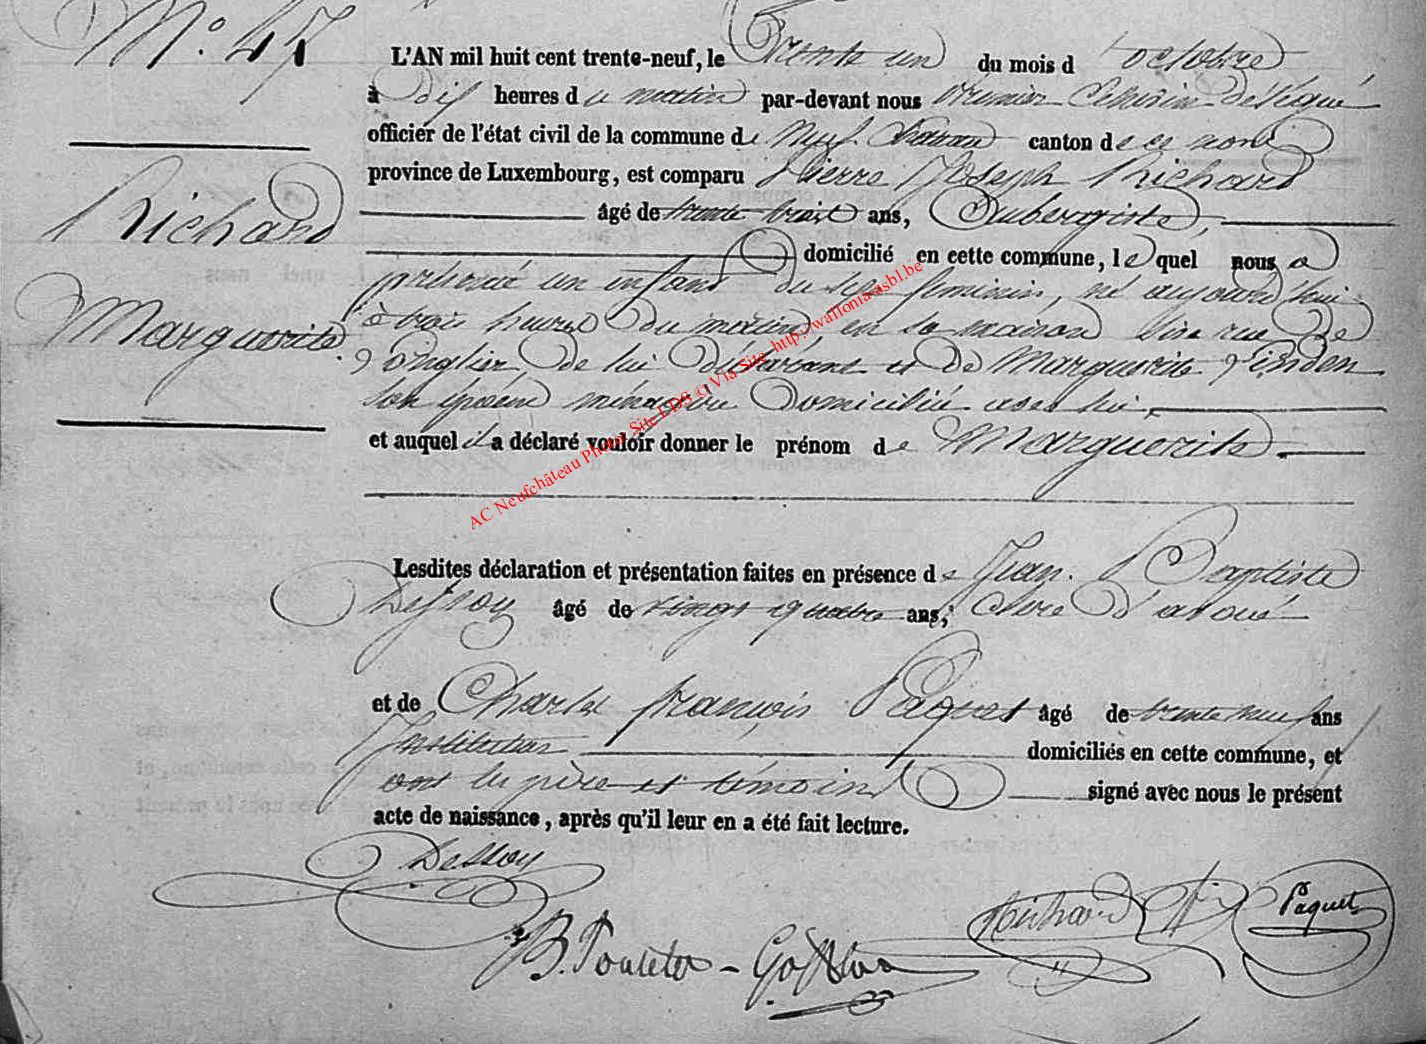 N.° 47
Richard
Marguerite
L'AN mil huit cent trente-neuf, le Trente un du mois d'octobre
à dix heures du matin par-devant nous Premier Echevin délégué
officier de l'état civil de la commune de Neufchateau canton de ce nom
province de Luxembourg, est comparu Pierre Joseph Richard
âgé de trente trois ans, Aubergiste,
domicilié en cette commune, lequel nous a
présenté un enfant du sexe feminin, né aujourd'hui
à trois heures du matin, en sa maison sise rue de
de lui déclarant et de Marguerite
son épouse ménagère domiciliée avec lui,
et auquel il a déclaré vouloir donner le prénom de Marguerite.
Lesdites déclaration et présentation faites en présence de Jean Baptiste
Dessoy âgé de vingt quatre ans, Clerc d'avoué
et de Charles françois Paquet âgé de trente neuf ans
Instituteur domiciliés en cette commune, et
ont les père et témoins signé avec nous le présent
acte de naissance, après qu'il leur en a été fait lecture.
Dessoy
Richard
Paquet
AC Neufchâteau Photo. Site LDS © Via Site http://wallonia-asbl.be